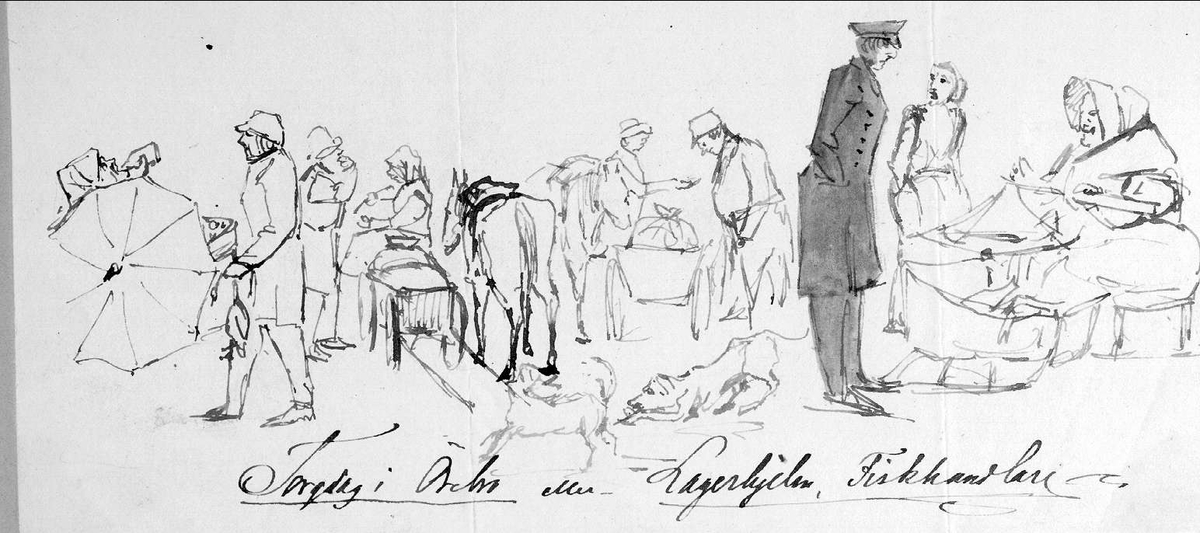 Torgdag i Örebro eller Lagerhjelm, Fiskhandlare